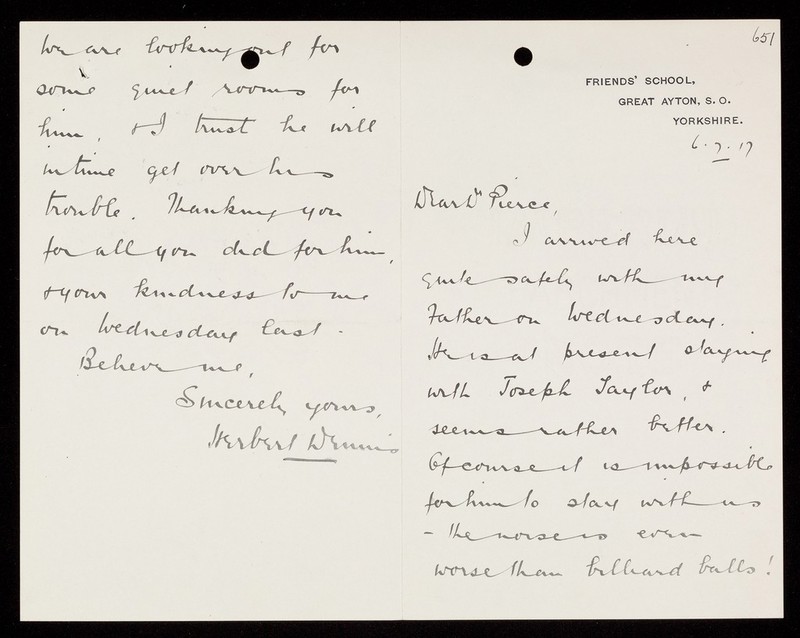 651
FRIENDS' SCHOOL,
GREAT AYTON, S. O.
YORKSHIRE.
6. 7. 17
Dear Dr Pierce,
I arrived here
quite safely with my
Father on Wednesday.
He is at present staying
with Joseph Taylor, &
seems rather better.
Of course it is impossible
for him to stay with us
- the noise is even
worse than billiard balls!
We are looking out for
some quiet rooms for
him, & I trust he will
in time get over his
trouble. Thanking you
for all you did for him,
& your kindness to me
on Wednesday last.
Believe me,
Sincerely yours,
Herbert Dennis